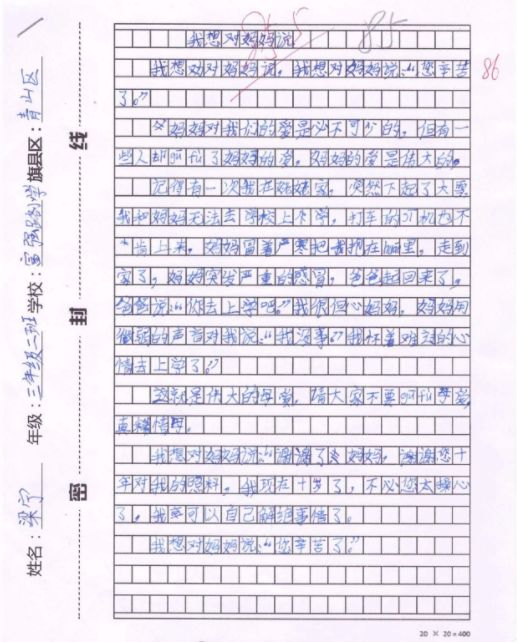 我想对妈妈说
85
86
我想对对妈妈说，我想对妈妈说：“您辛苦
了。”
妈妈对我们的爱是必不可少的，但有一
些人却忘了妈妈的爱。妈妈的爱是伟大的。
记得有一次我在姥姥家，突然下起了大
我和妈妈无法去学校上学，打车的司机也不
肯上来。妈妈冒着严寒把我抱在怀里，走到
家了，妈妈突发严重的感冒，爸爸赶回来了，
爸爸说：“你去上学吧。”我很但心妈妈，妈妈用
微弱的声音对我说：“我没事。”我怀着难过的心
情去上学了。
这就是伟大的母爱，请大家不要母爱，
真稀惜母。
我想对妈妈说：“谢谢了妈妈，谢谢您十
年对我的照料，我现在十岁了，不必您太操心
了，我可以自己解绝事情了。
我想对妈妈说：“您辛苦了。”
20 × 20 = 400
密 封 线
姓名：梁宁 年级：三年级二班 学校：富强路小学 旗县区：青山区